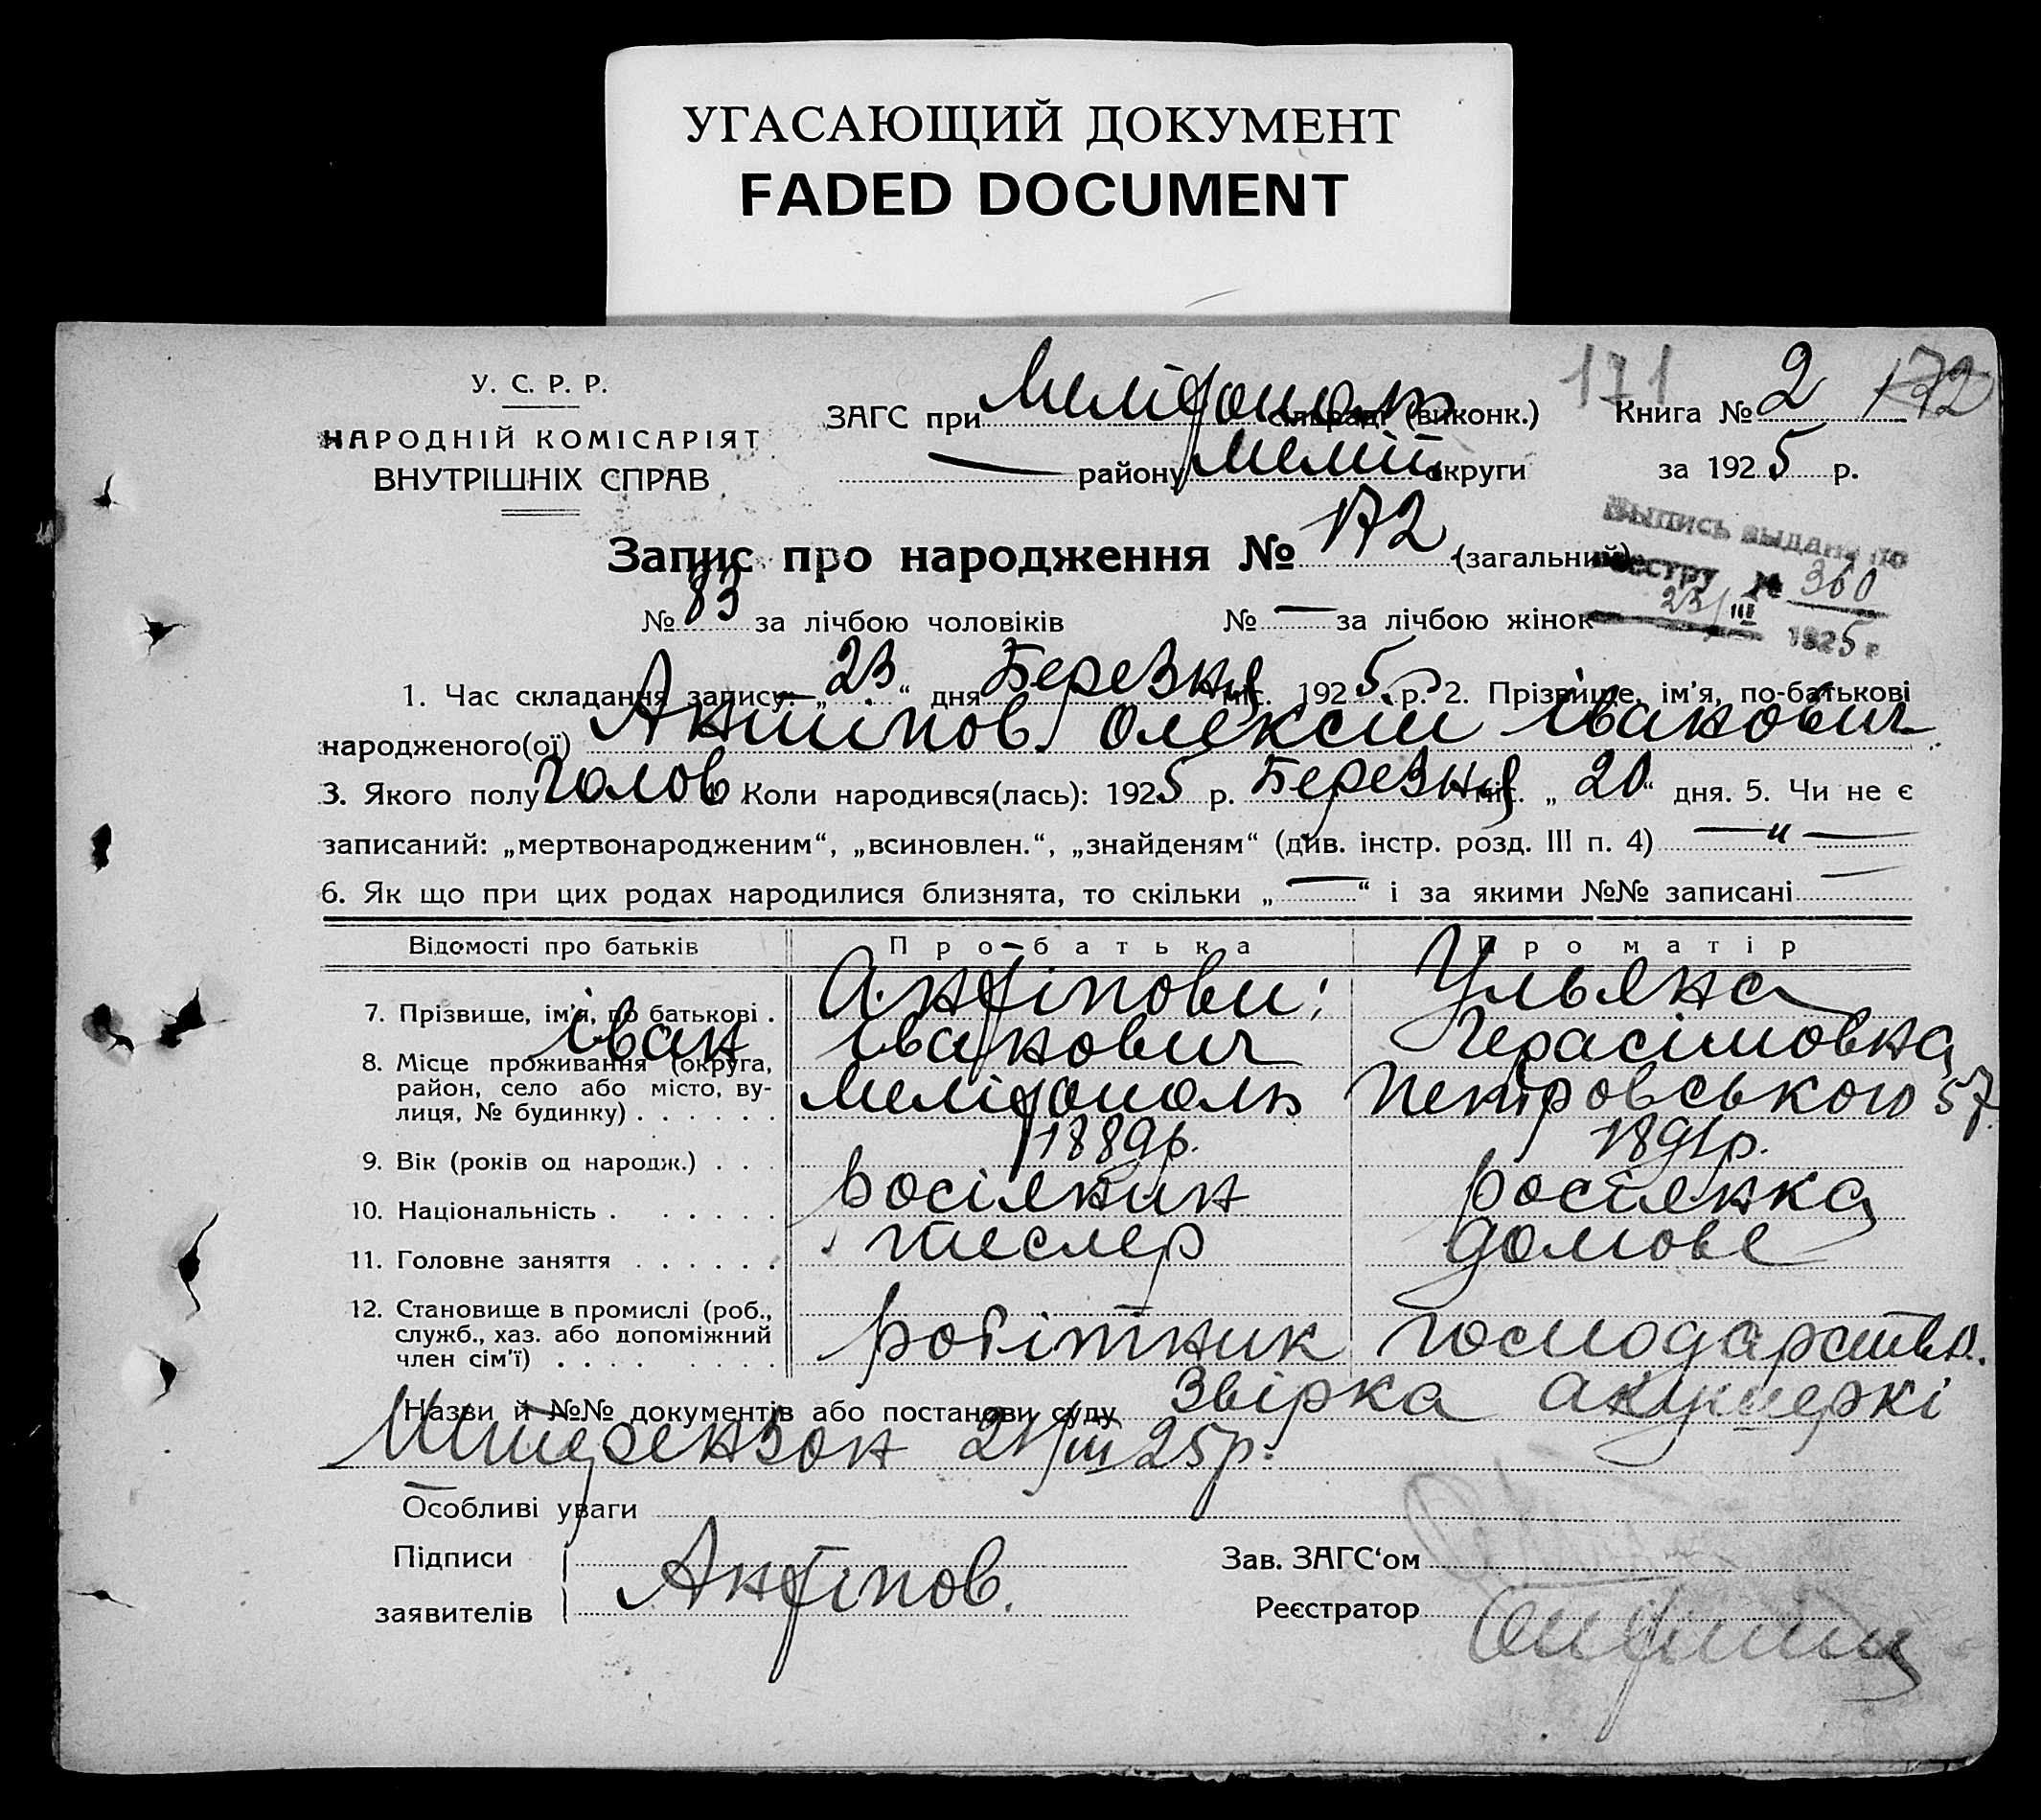 УГАСАЮЩИЙ ДОКУМЕНТ
FADED DOCUMENT
У. С. Р. Р.
НАРОДНІЙ КОМІСАРІЯТ
ВНУТРІШНІХ СПРАВ
171
ЗАГС при Мелітополь сільраді (виконк.) Книга № 2 172
— району Меліт округи за 1925 р.
Запис про народження № 172 (загальний)
Выпись выдана по реестру № 360
23/III 1925 г
№ 83 за лічбою чоловіків № — за лічбою жінок
1. Час складання запису: „23“ дня Березня міс. 1925 р. 2. Прізвище, ім’я, по-батькові
народженого(ої) Антіпов Олексій Іванович
3. Якого полу чолов 4. Коли народився(лась): 1925 р. Березня міс. „20“ дня. 5. Чи не є
записаний: „мертвонародженим“, „всиновлен.“, „знайденям“ (див. інстр. розд. III п. 4) — „ —
6. Як що при цих родах народилися близнята, то скільки „—“ і за якими №№ записані —
Відомості про батьків Про батька Про матір
7. Прізвище, ім’я, по батькові . Антіпови: Ульяна
Іван Іванович Герасімовна
8. Місце проживання (округа,
район, село або місто, ву-
лиця, № будинку) . . . . . . Мелітополь Петровського 57
9. Вік (років од народж.) . . . 1889р. 1891р.
10. Національність . . . . . . росіянин росіянка
11. Головне заняття . . . . . . тесляр домове
12. Становище в промислі (роб.,
служб., хаз. або допоміжний
член сім’ї) . . . . . . . . робітник господарство.
Назви й №№ документів або постанови суду Звірка акушеркі
21/III 25р.
Особливі уваги
Підписи
заявителів Антіпов.
Зав. ЗАГС‘ом
Реєстратор